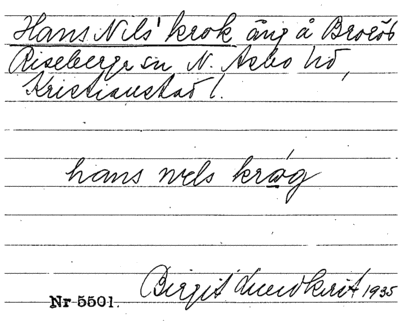 Hans Nils' krok äng å Broröd
Riseberga sn N. Åsbo hd,
Kristianstad l.
hans nels kråg
Nr 5501. Birgit Lundkvist 1935